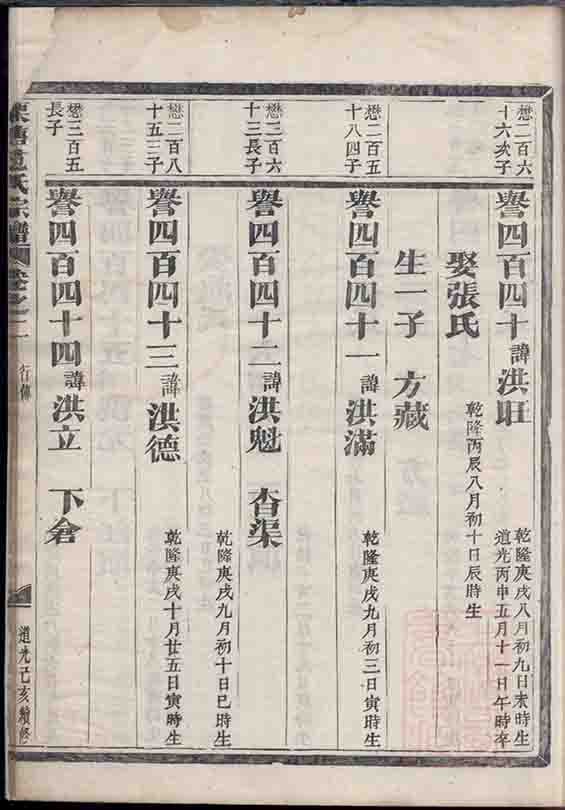 懋二百六
十六次子
譽四百四十 諱 洪旺
乾隆庚戌八月初九日未時生
道光丙申五月十一日午時卒
娶張氏
乾隆丙辰八月初十日辰時生
生一子 方藏
懋二百五
十八四子
譽四百四十一 諱 洪滿
乾隆庚戌九月初三日寅時生
懋二百六
十三長子
譽四百四十二 諱 洪魁 杳渠
乾隆庚戌九月初十日巳時生
懋二百八
十五三子
譽四百四十三 諱 洪德
乾隆庚戌十月廿五日寅時生
懋三百五
長子
譽四百四十四 諱 洪立 下倉
氏宗譜 卷之二 行傳 道光己亥續修